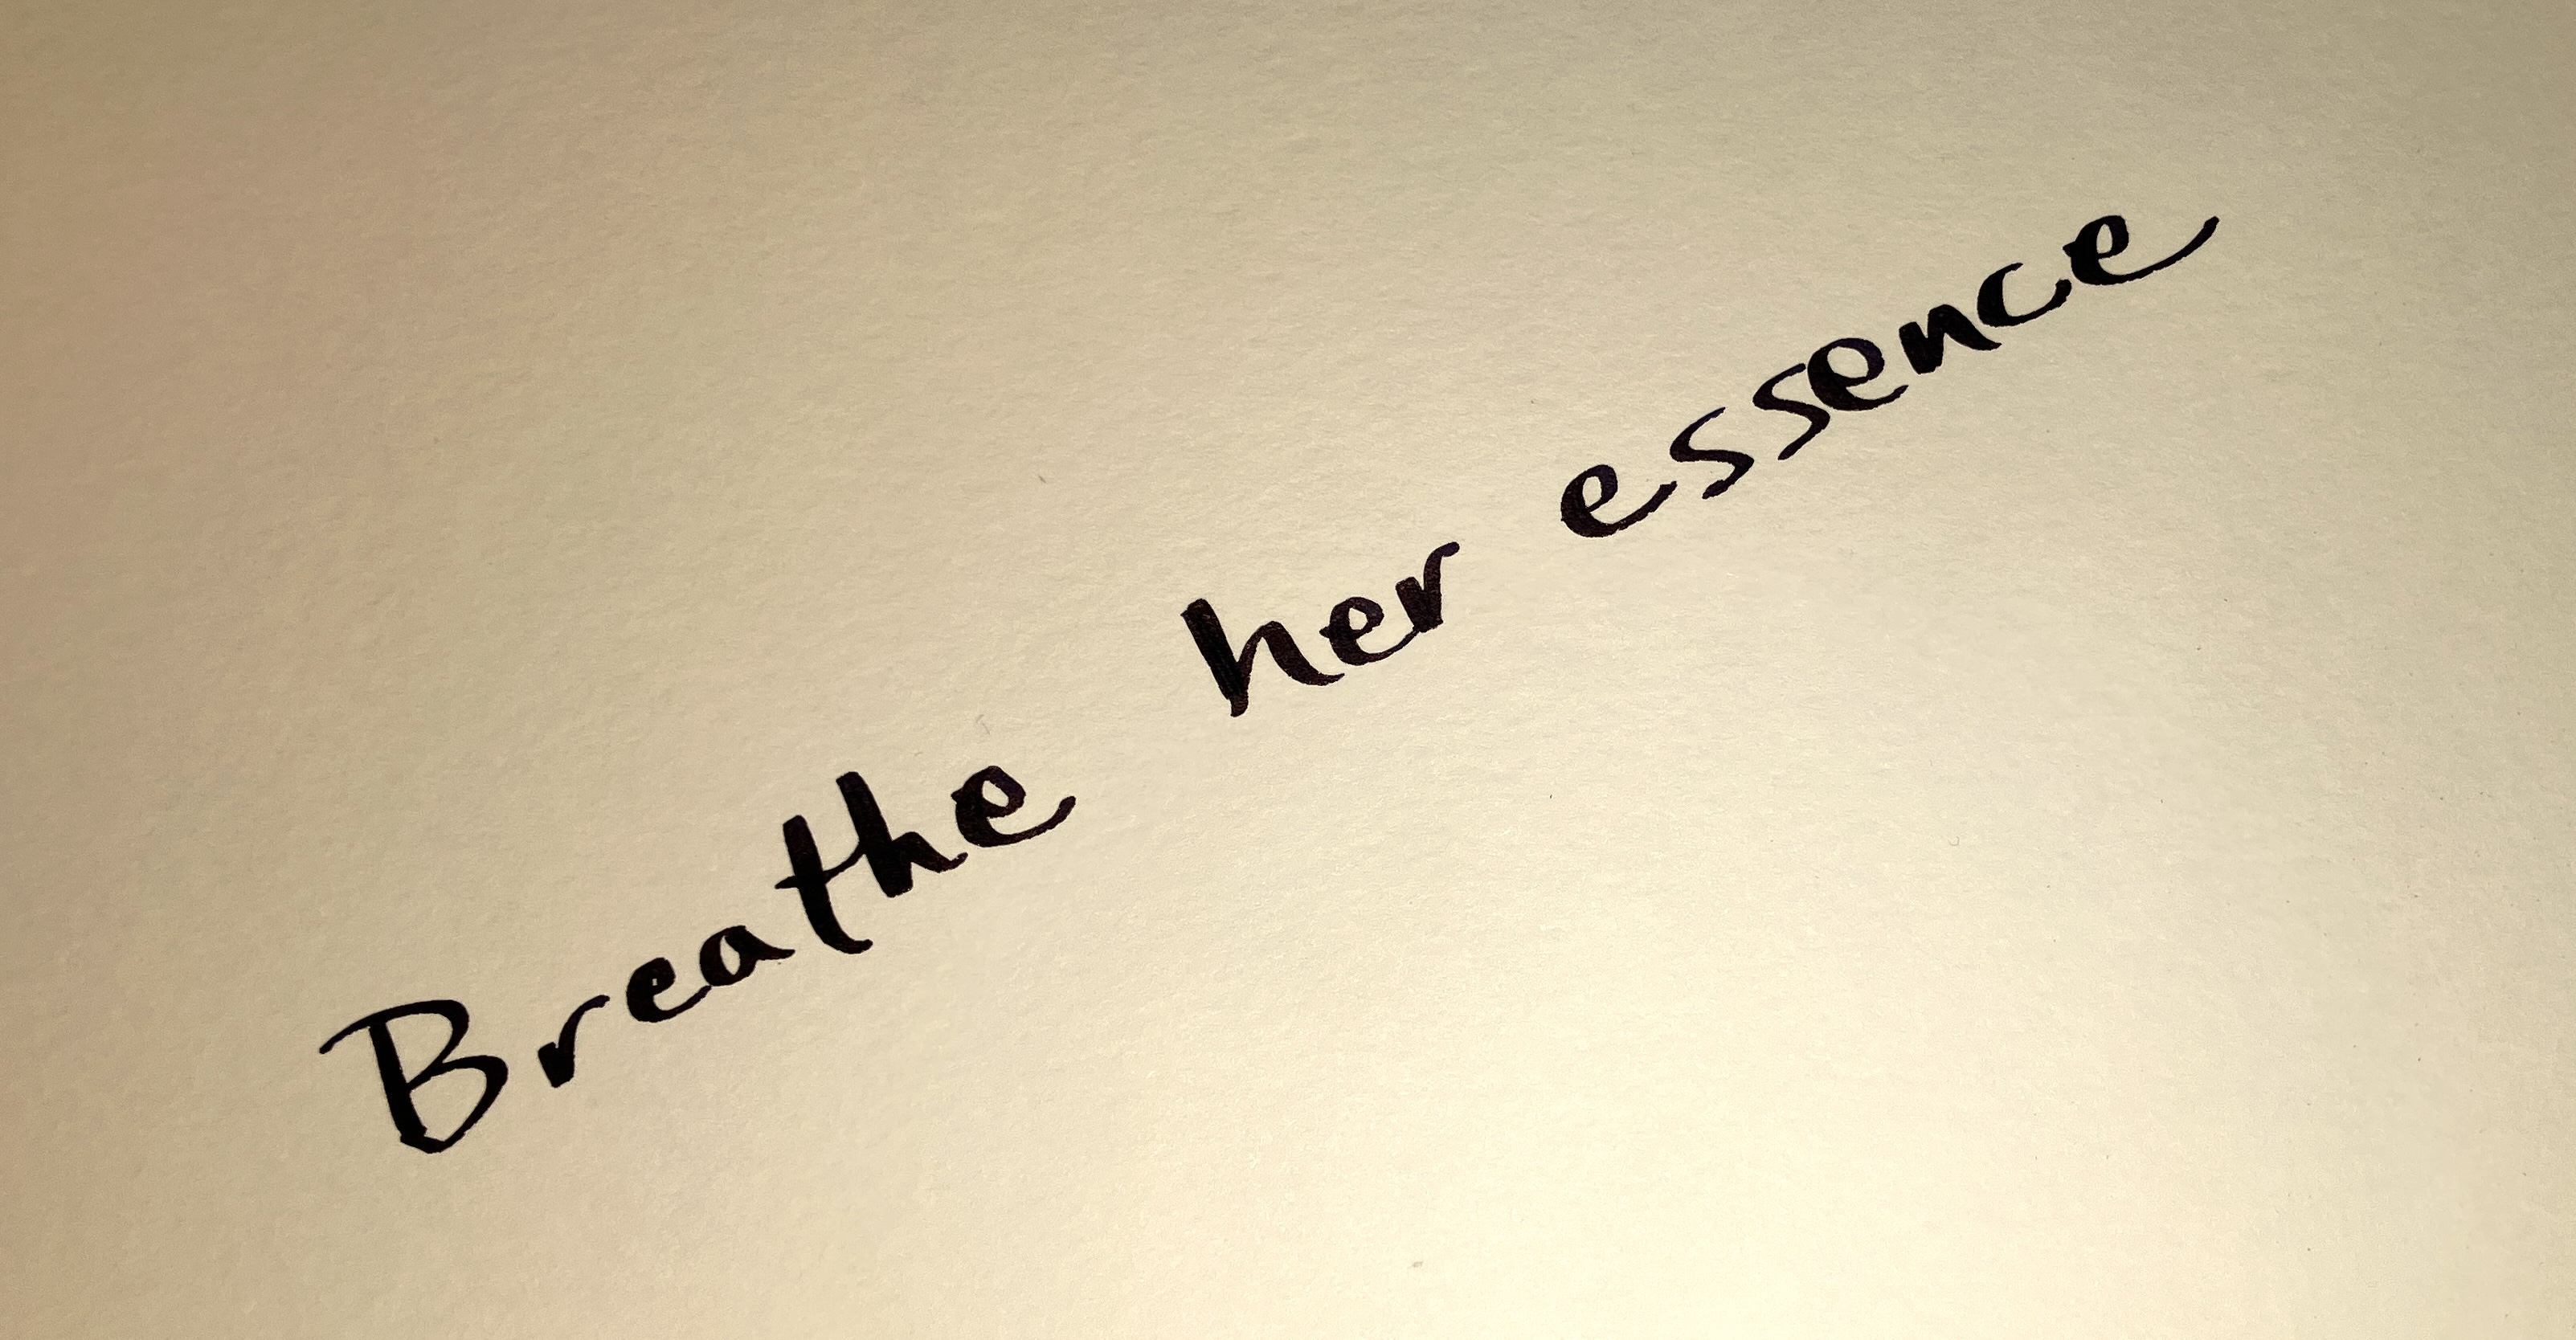 Breathe her essence